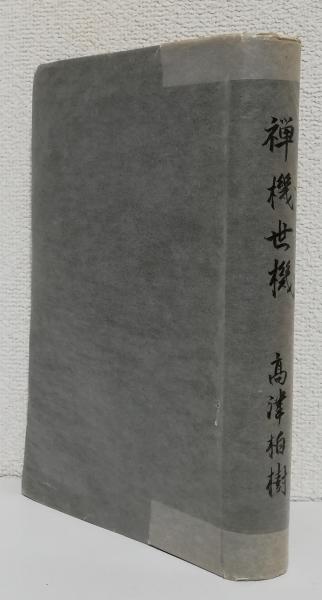 禅機世機 高津柏樹